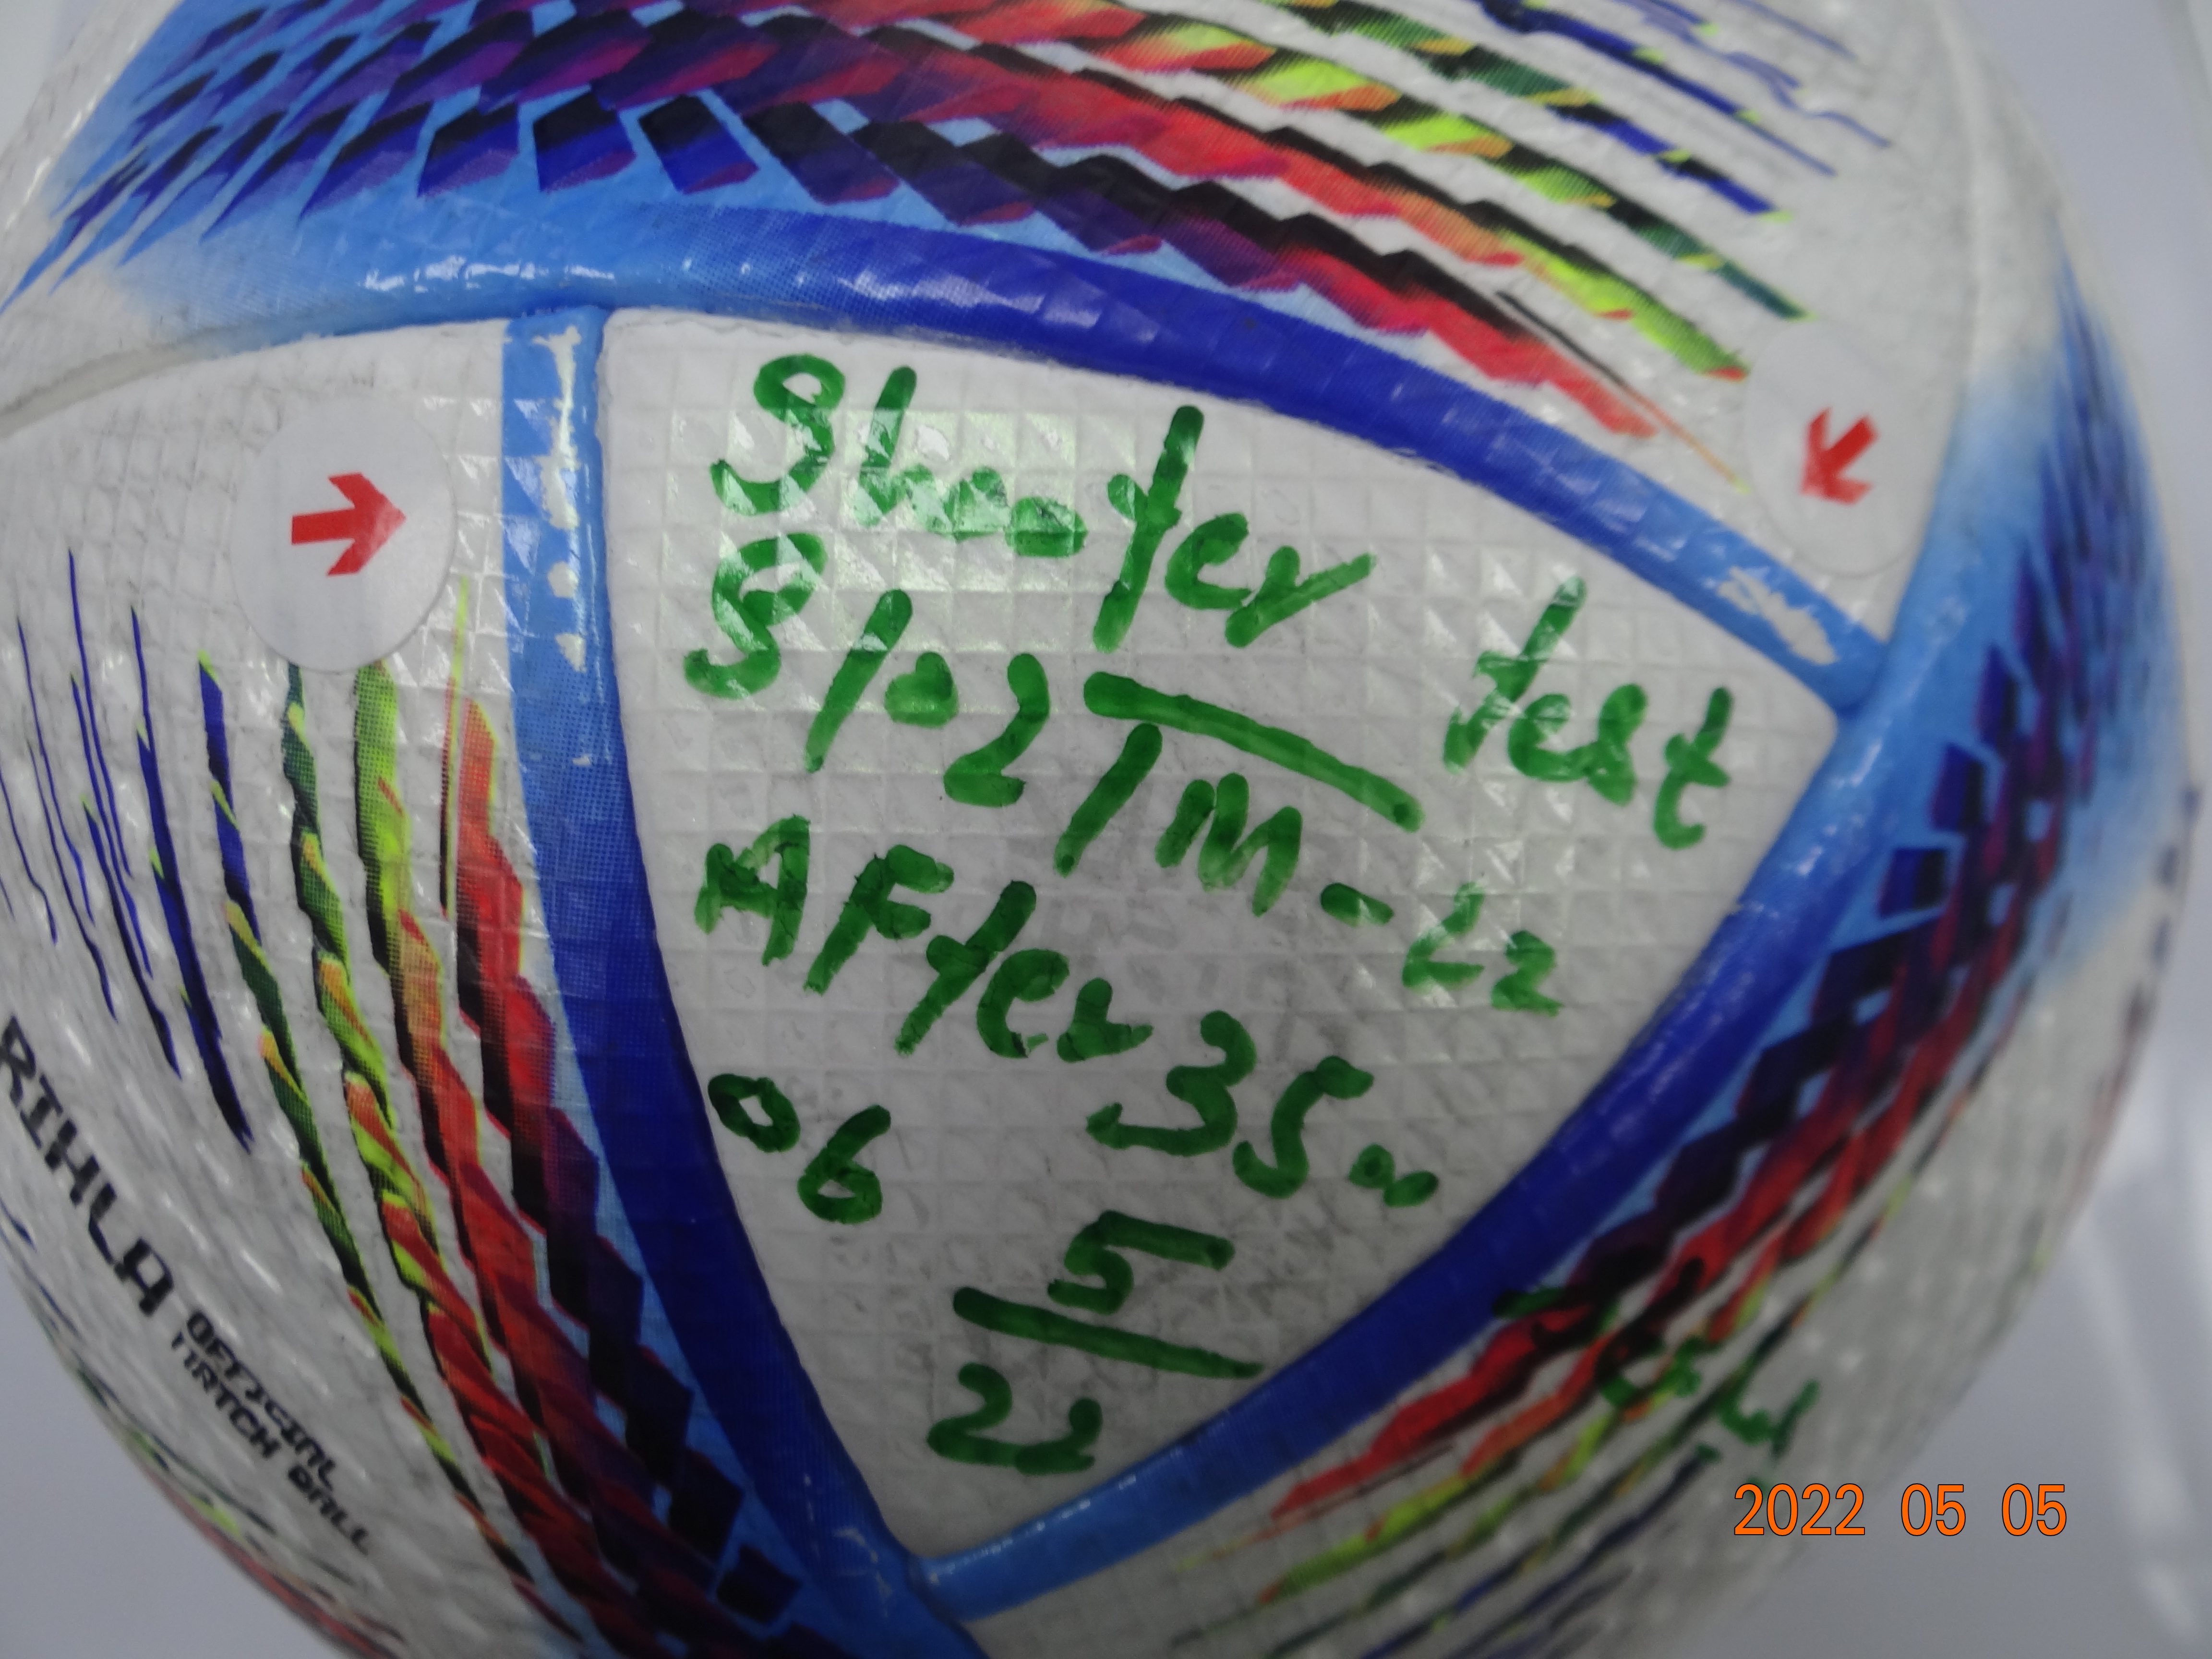 Shooter test
S/02TM-L2
AFter 3500
06
5
22
RIHLA
OFFICIAL
MATCH BALL
2022 05 05